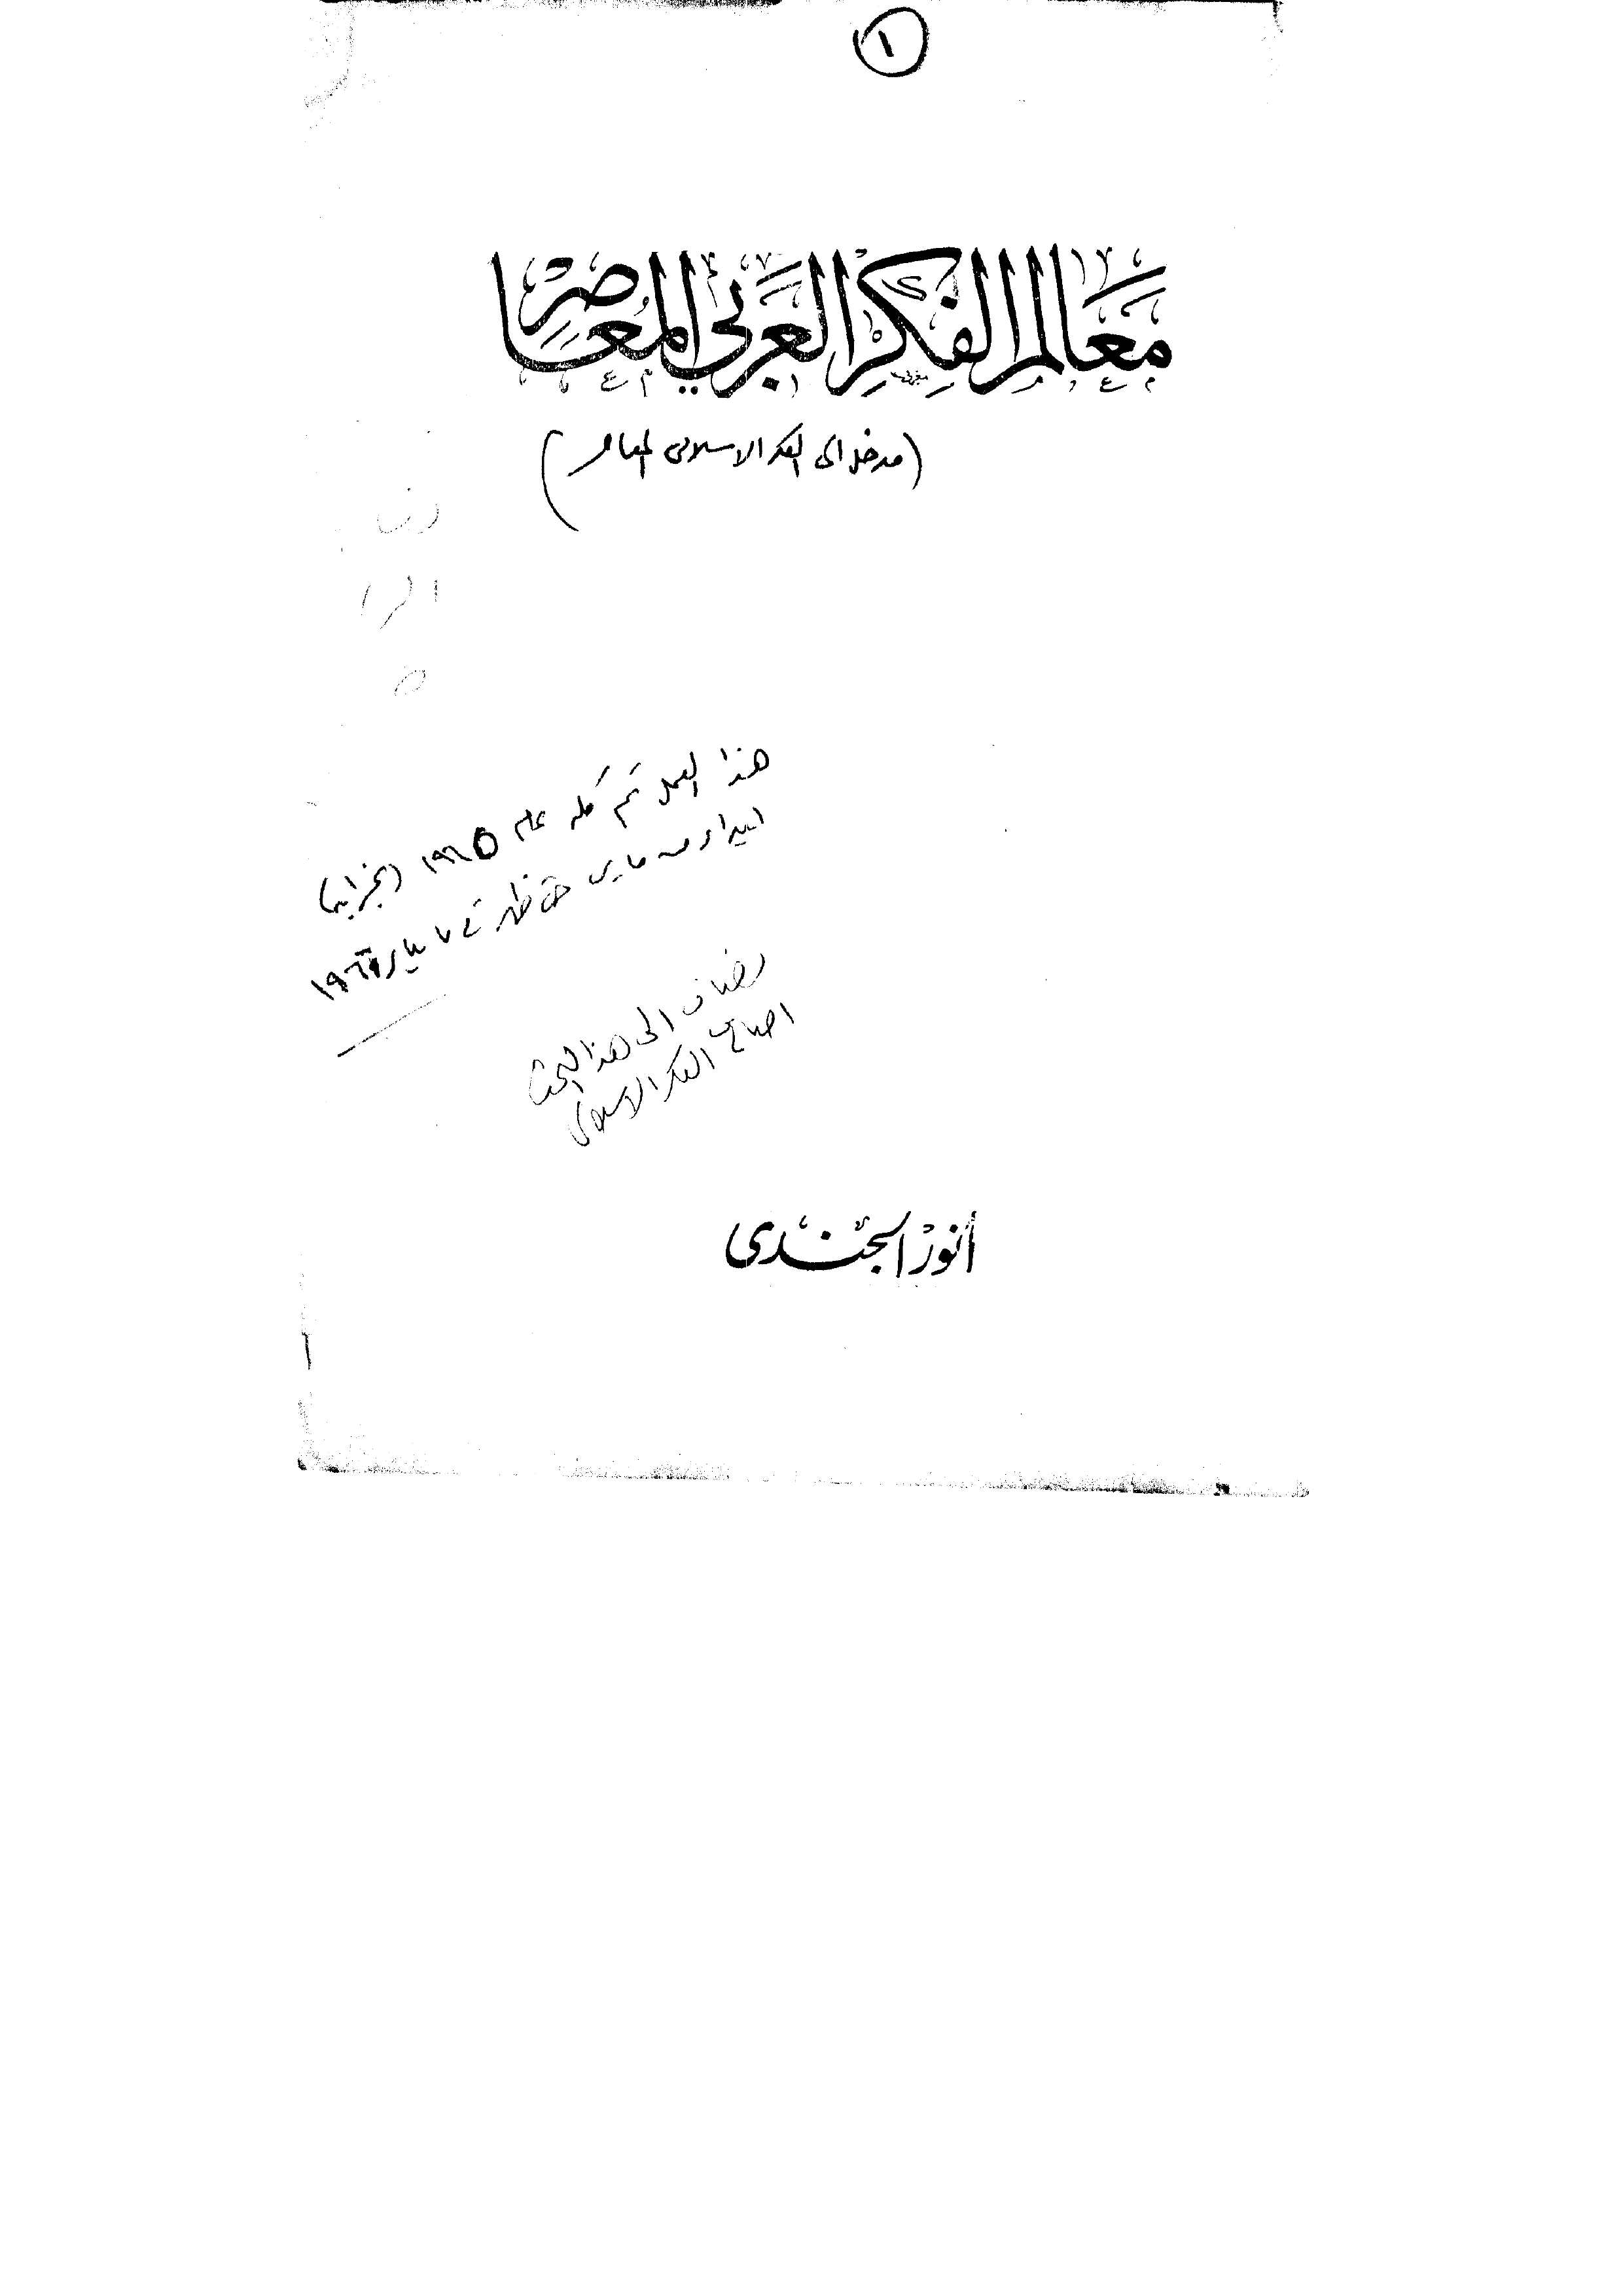 ١
معالم الفكر العربي المعاصر
(مدخل الى الفكر الاسلامى المعاصر)
هذا العمل تم كله عام ١٩٦٥
ابتداء من مارس حتى ظهر في ٧ يناير ١٩٦٦
يضاف الى هذا البحث
اصلاح الفكر الاسلامى
أنور الجندى